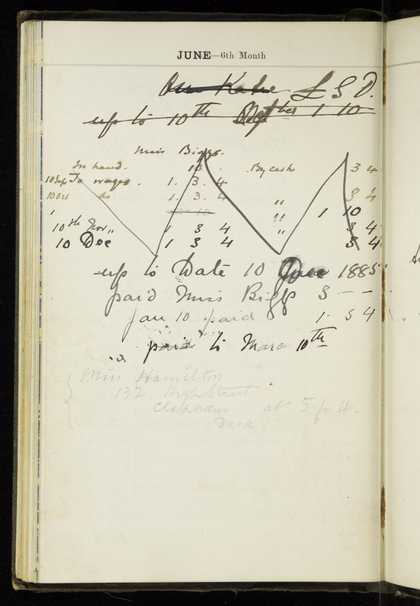 JUNE—6th Month
£ S D.
up to 10th 1 10
Miss Biggs.
In hand. 10 By cash 3 4
10 Sep To wages. 1. 3. 4 3 4
10 Oct do 1. 3. 4 " 1 10
10th Nov " 1 3 4 " 3 4
10 Dec 1 3 4 3 4
up to Date 10 1885
paid Miss Biggs 3 – –
Jan 10 paid 1. 3 4
paid to Marc 10th
Miss Hamilton
132 High Street
Clapham at 5